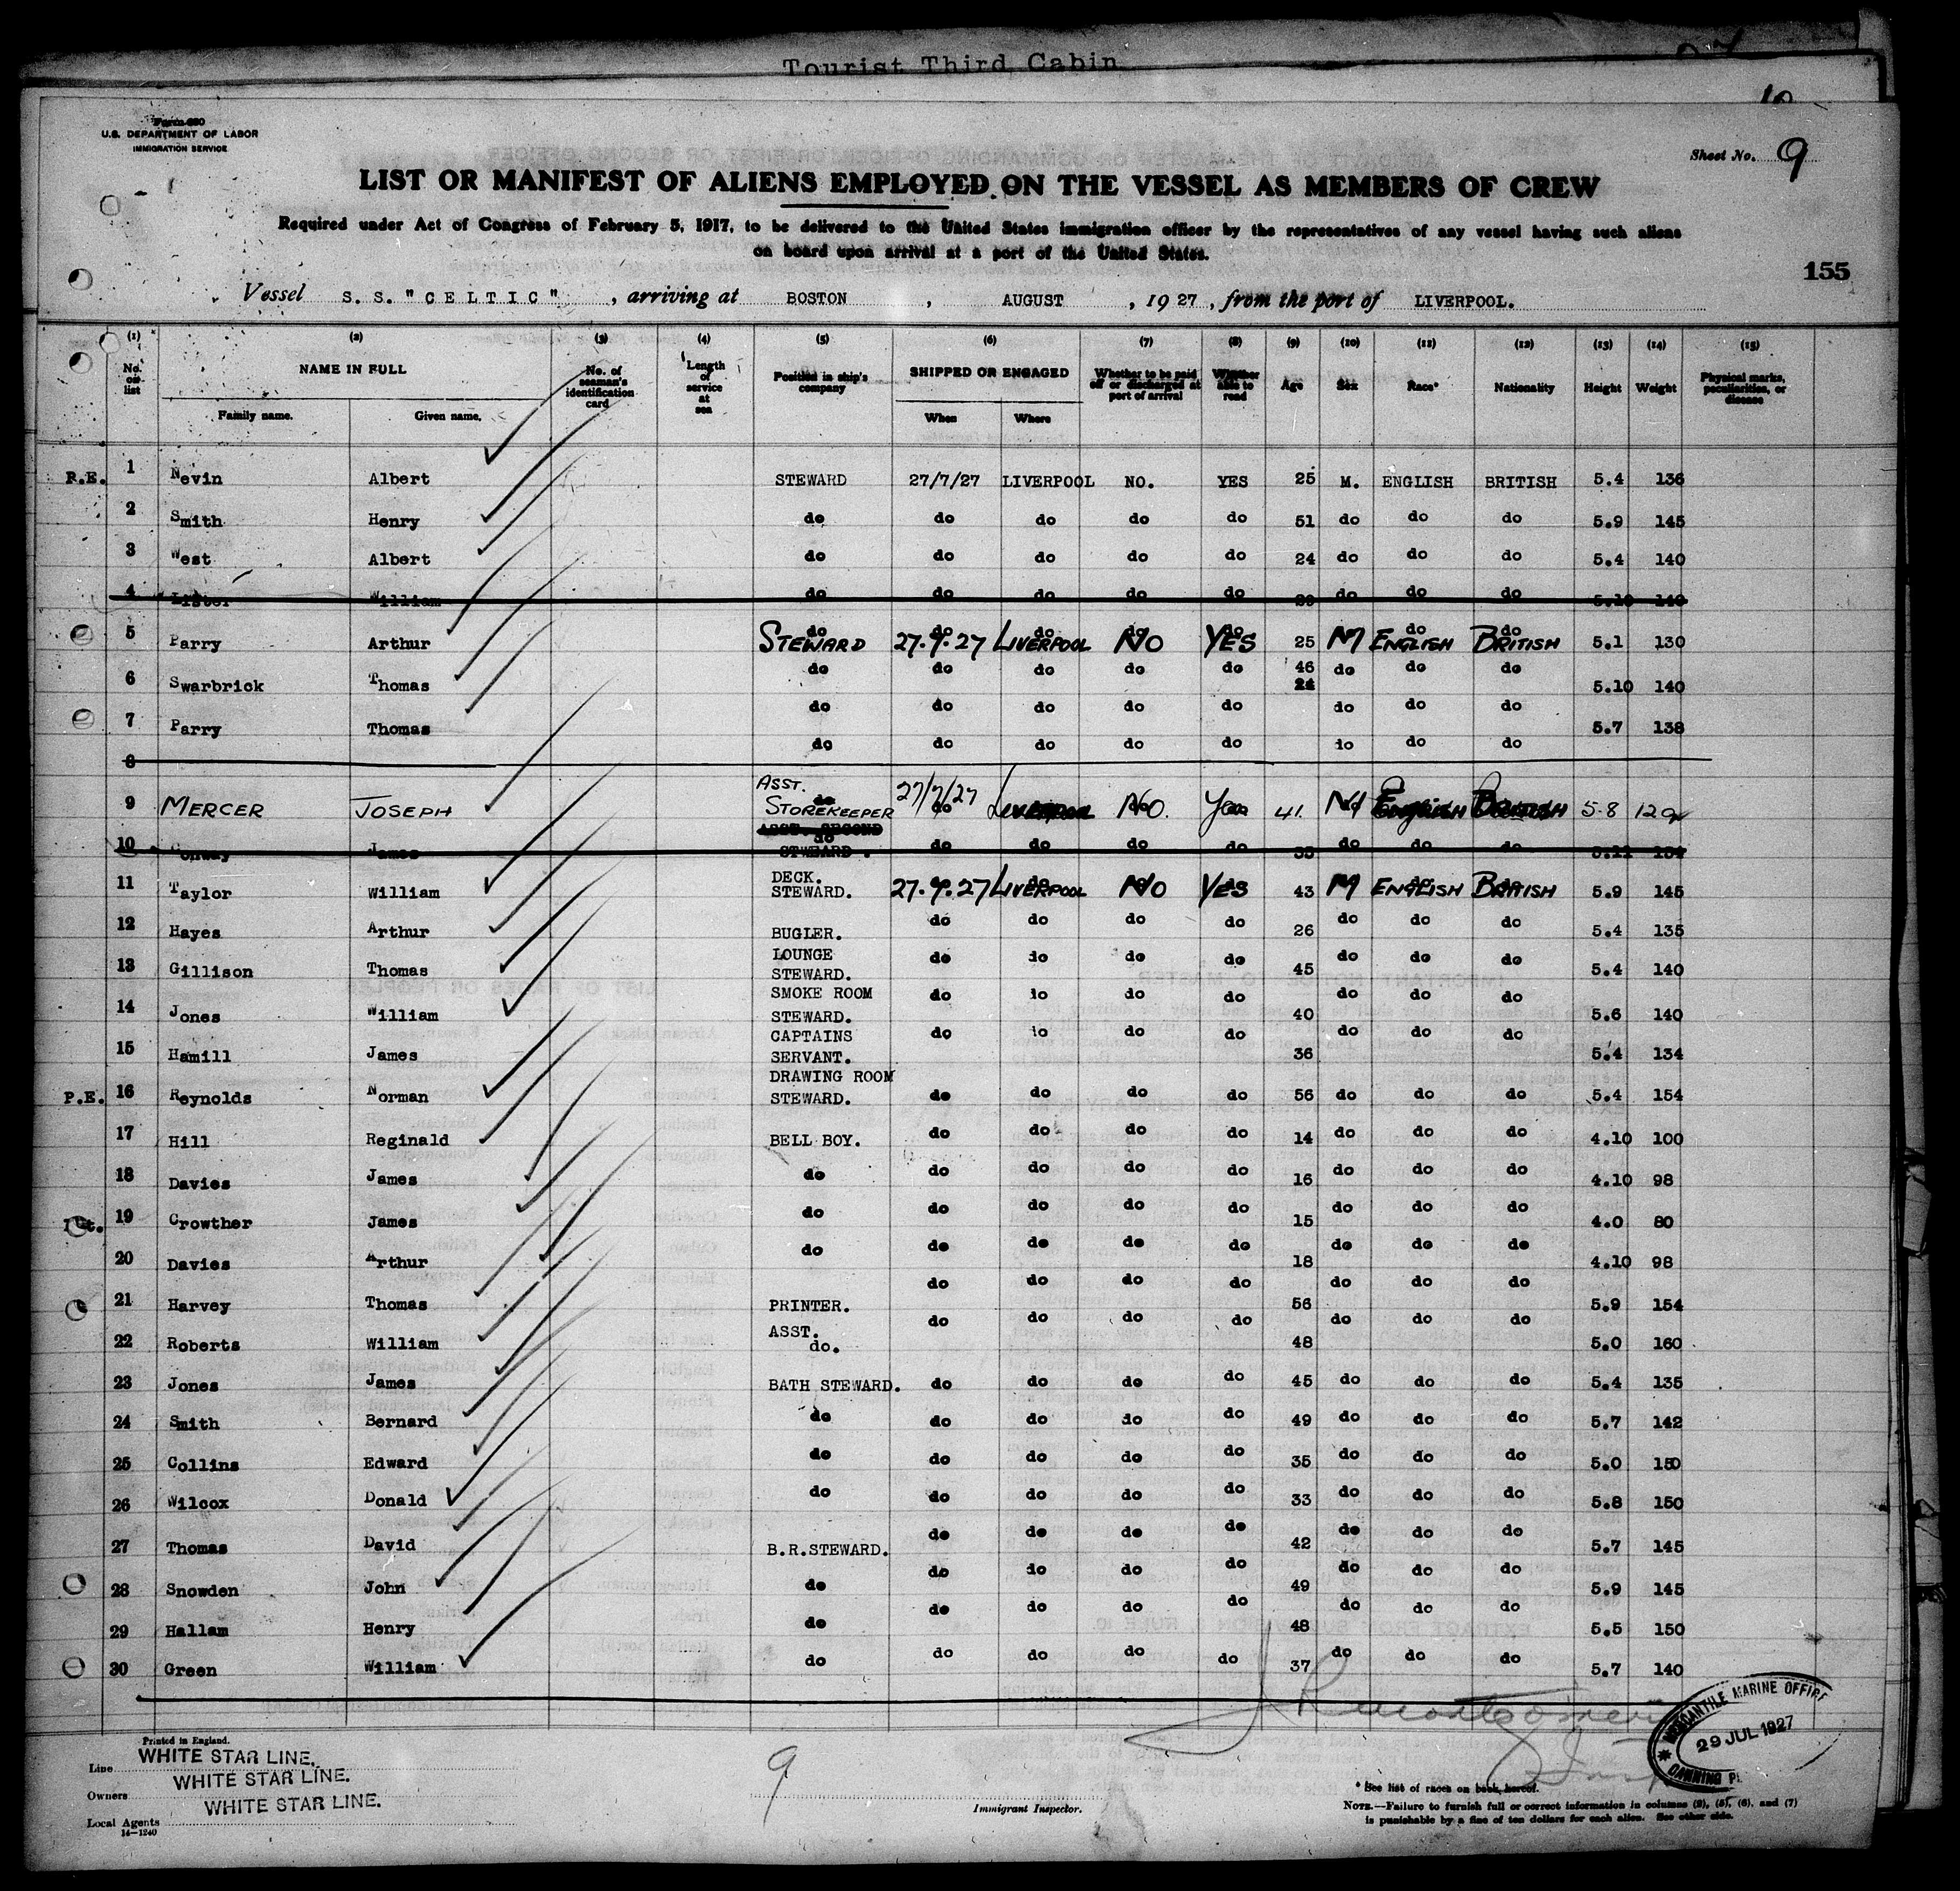 Tourist Third Cabin
10
Form 680
U.S. DEPARTMENT OF LABOR
IMMIGRATION SERVICE
Sheet No. 9
LIST OR MANIFEST OF ALIENS EMPLOYED ON THE VESSEL AS MEMBERS OF CREW
Required under Act of Congress of February 5, 1917, to be delivered to the United States immigration officer by the representatives of any vessel having such aliens
on board upon arrival at a port of the United States.
155
Vessel S. S. "CELTIC", arriving at BOSTON, AUGUST, 1927, from the port of LIVERPOOL.
(1) (2) (3) (4) (5) (6) (7) (8) (9) (10) (11) (12) (13) (14) (15)
No. on list NAME IN FULL Family name. Given name. No. of seaman's identification card Length of service at sea Position in ship's company SHIPPED OR ENGAGED When Where Whether to be paid off or discharged at port of arrival Whether able to read Age Sex Race* Nationality Height Weight Physical marks, peculiarities, or disease
R.E. 1 Nevin Albert STEWARD 27/7/27 LIVERPOOL NO. YES 25 M. ENGLISH BRITISH 5.4 136
2 Smith Henry do do do do do 51 do do do 5.9 145
3 West Albert do do do do do 24 do do do 5.4 140
4 Lister William do do do do do do do do
5 Parry Arthur STEWARD 27.7.27 LIVERPOOL NO YES 25 M ENGLISH BRITISH 5.1 130
6 Swarbrick Thomas do do do do do 46 24 do do do 5.10 140
7 Parry Thomas do do do do do do do do 5.7 138
8 do do do do do do do do
9 MERCER JOSEPH ASST. STOREKEEPER 27/7/27 LIVERPOOL NO. Yes 41. M English British 5-8 129
10 Conway James ASST. SECOND STEWARD. do do do do do do do
11 Taylor William DECK. STEWARD. 27.7.27 LIVERPOOL NO YES 43 M ENGLISH BRITISH 5.9 145
12 Hayes Arthur BUGLER. do do do do 26 do do do 5.4 135
13 Gillison Thomas LOUNGE STEWARD. do do do do 45 do do do 5.4 140
14 Jones William SMOKE ROOM STEWARD. do do do do 40 do do do 5.6 140
15 Hamill James CAPTAINS SERVANT. do do do do 36 do do do 5.4 134
P.E. 16 Reynolds Norman DRAWING ROOM STEWARD. do do do do 56 do do do 5.4 154
17 Hill Reginald BELL BOY. do do do do 14 do do do 4.10 100
18 Davies James do do do do do 16 do do do 4.10 98
19 Crowther James do do do do do 15 do do do 4.0 80
20 Davies Arthur do do do do do 18 do do do 4.10 98
21 Harvey Thomas PRINTER. do do do do 56 do do do 5.9 154
22 Roberts William ASST. do. do do do do 48 do do do 5.0 160
23 Jones James BATH STEWARD. do do do do 45 do do do 5.4 135
24 Smith Bernard do do do do do 49 do do do 5.7 142
25 Collins Edward do do do do do 35 do do do 5.0 150
26 Wilcox Donald do do do do do 33 do do do 5.8 150
27 Thomas David B.R.STEWARD. do do do do 42 do do do 5.7 145
28 Snowden John do do do do do 49 do do do 5.9 145
29 Hallam Henry do do do do do 48 do do do 5.5 150
30 Green William do do do do do 37 do do do 5.7 140
MERCANTILE MARINE OFFICE
29 JUL 1927
CANNING PL
Printed in England.
Line WHITE STAR LINE.
Owners WHITE STAR LINE.
Local Agents WHITE STAR LINE.
14—1240
9
Immigrant Inspector.
* See list of races on back hereof.
NOTE.—Failure to furnish full or correct information in columns (2), (5), (6), and (7)
is punishable by a fine of ten dollars for each alien. See other side.